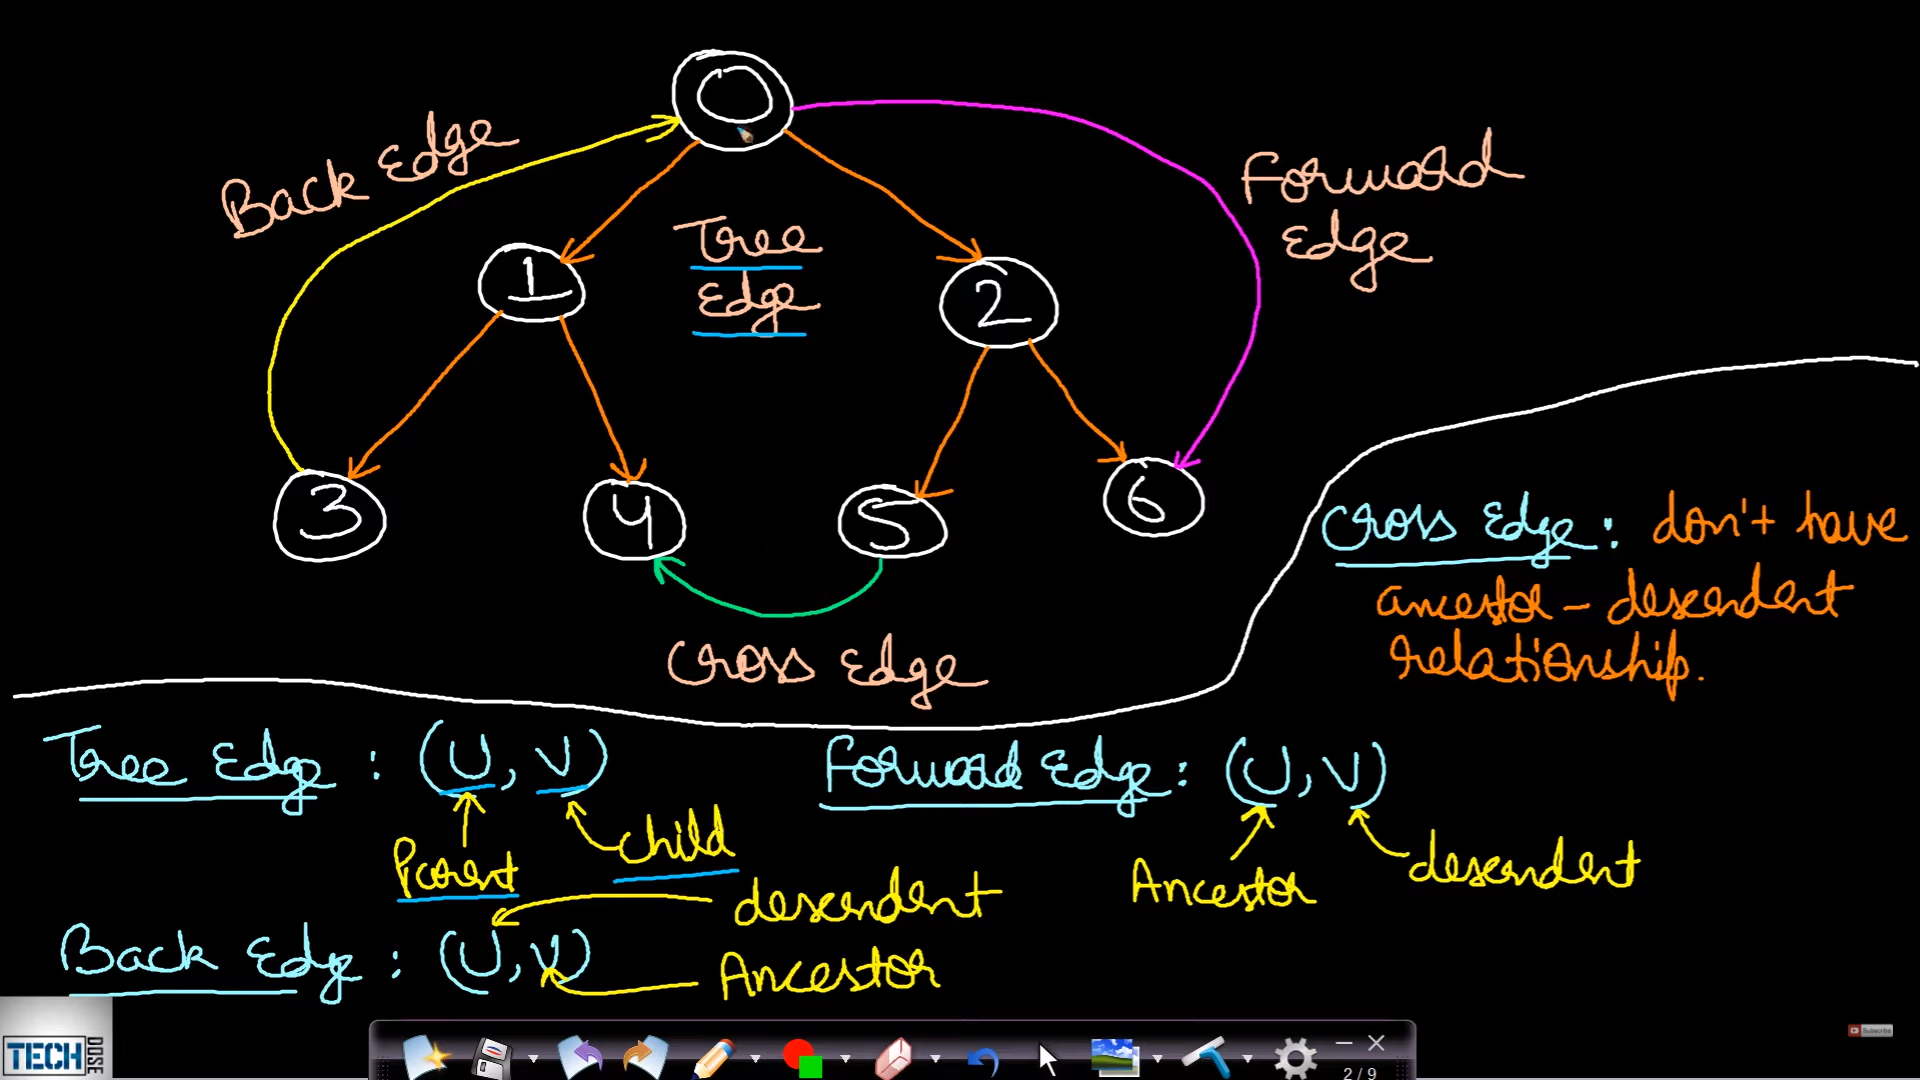 0
Back Edge
Forward
Edge
Tree
Edge
1
2
3
4
5
6
Cross Edge
Cross Edge : don't have
ancestor - descendent
relationship.
Tree Edge : (U, V)
Parent
child
Forward Edge : (U, V)
Ancestor
descendent
Back Edge : (U, V)
descendent
Ancestor
TECH
DOSE
Subscribe
2 / 9